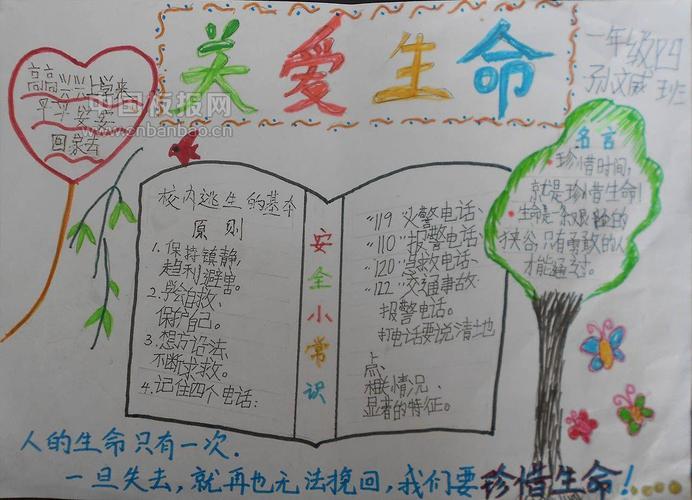 关爱生命
一年级四班
孙文威
高高兴兴上学来
平平安安
回家去
中国板报网
www.cnbanbao.cn
校内逃生的基本
原则
1.保持镇静,
趋利避害。
2.学会自救,
保护自己。
3.想方设法
不断求救。
4.记住四个电话:
安全小常识
"119"火警电话、
"110"报警电话、
"120"急救电话、
"122"交通事故
报警电话。
打电话要说清土地
点、
相关情况、
显著的特征。
名言
珍惜时间,
就是珍惜生命!
生命是一条艰险的
狭谷,只有勇敢的人
才能通过。
人的生命只有一次.
一旦失去,就再也无法挽回,我们要珍惜生命!....